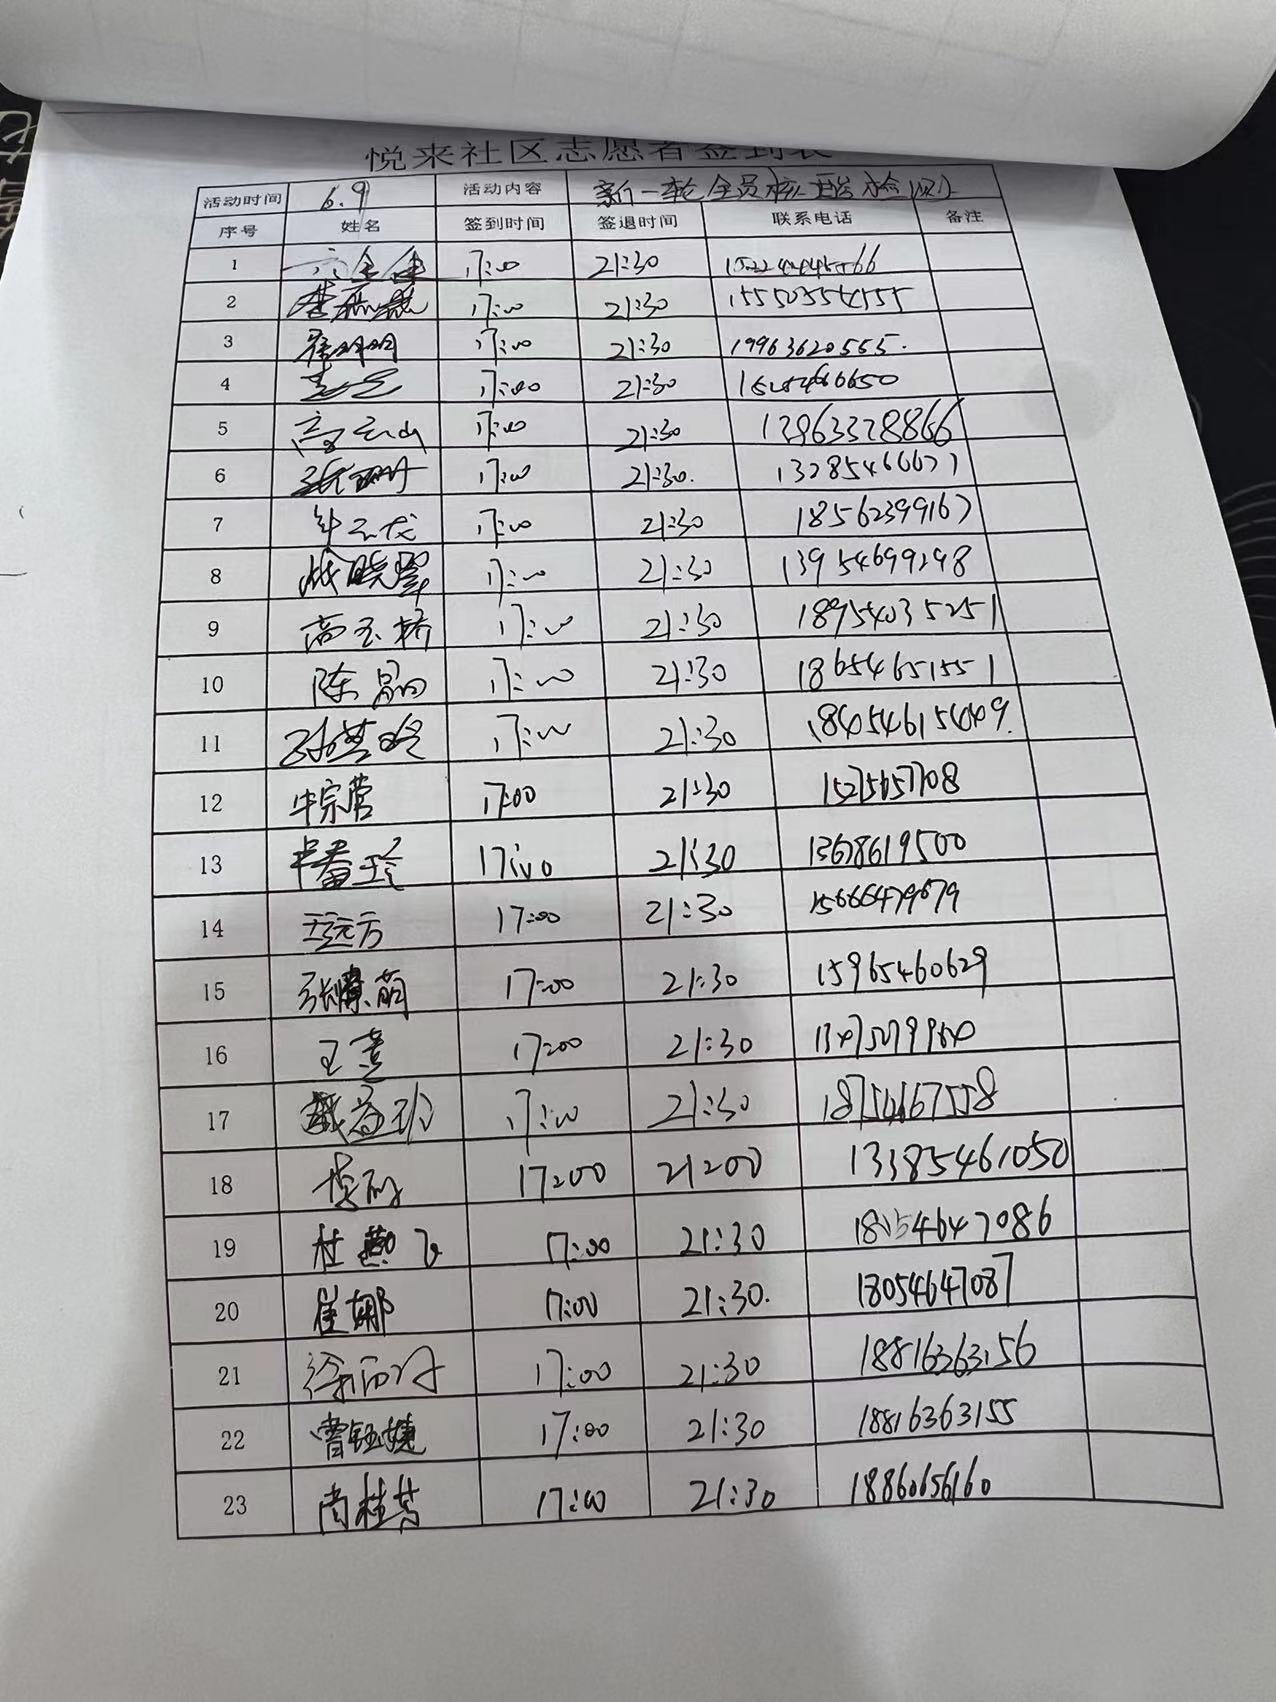 悦来社区志愿者签到表
活动时间 6.9 活动内容 新一轮全员核酸检测
序号 姓名 签到时间 签退时间 联系电话 备注
1 17:00 21:30
2 17:00 21:30 15550354555
3 17:00 21:30 19963620555.
4 17:00 21:30
5 高云山 17:00 21:30 13963328866
6 张珊 17:00 21:30. 13285466677
7 17:00 21:30 18562399167
8 17:00 21:30 13954699298
9 高玉桥 17:00 21:30 18954035251
10 陈晶 17:00 21:30 18654651551
11 17:00 21:30
12 牛宗营 17:00 21:30 15275657708
13 17:00 21:30 13678619500
14 王远方 17:00 21:30 15666479679
15 张慷萌 17:00 21:30 15965460629
16 王 17:00 21:30
17 17:00 21:30 18754667558
18 17:00 21:00 13385461050
19 杜燕飞 17:00 21:30 18154647086
20 崔娜 17:00 21:30. 18054647087
21 徐丽 17:00 21:30 18816363156
22 曹钰婕 17:00 21:30 18816363155
23 尚桂芳 17:00 21:30 18860656160